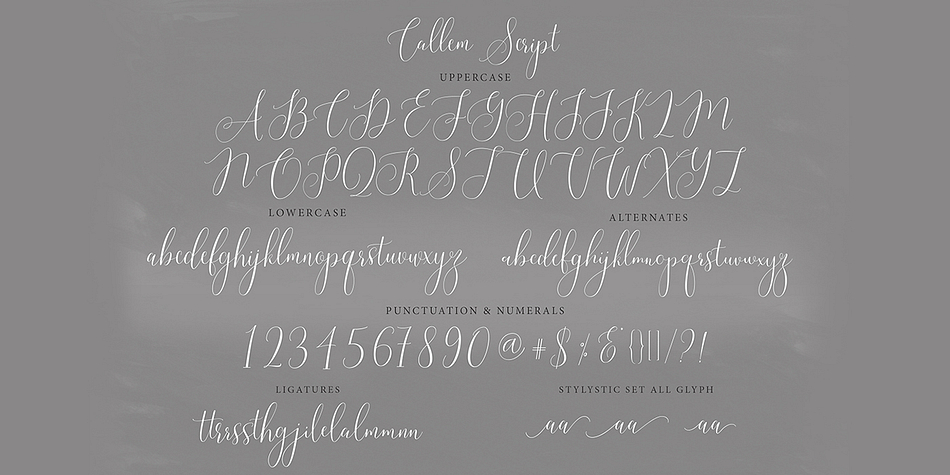 Callem Script
UPPERCASE
ABCDEFGHIJKLM
NOPQRSTUVWXYZ
LOWERCASE
ALTERNATES
abcdefghijklmnopqrstuvwxyz
abcdefghijklmnopqrstuvwxyz
PUNCTUATION & NUMERALS
1234567890@#$%&{}[]/?!
LIGATURES
STYLYSTIC SET ALL GLYPH
ttrrssthgjilelalmmnn
aa aa aa